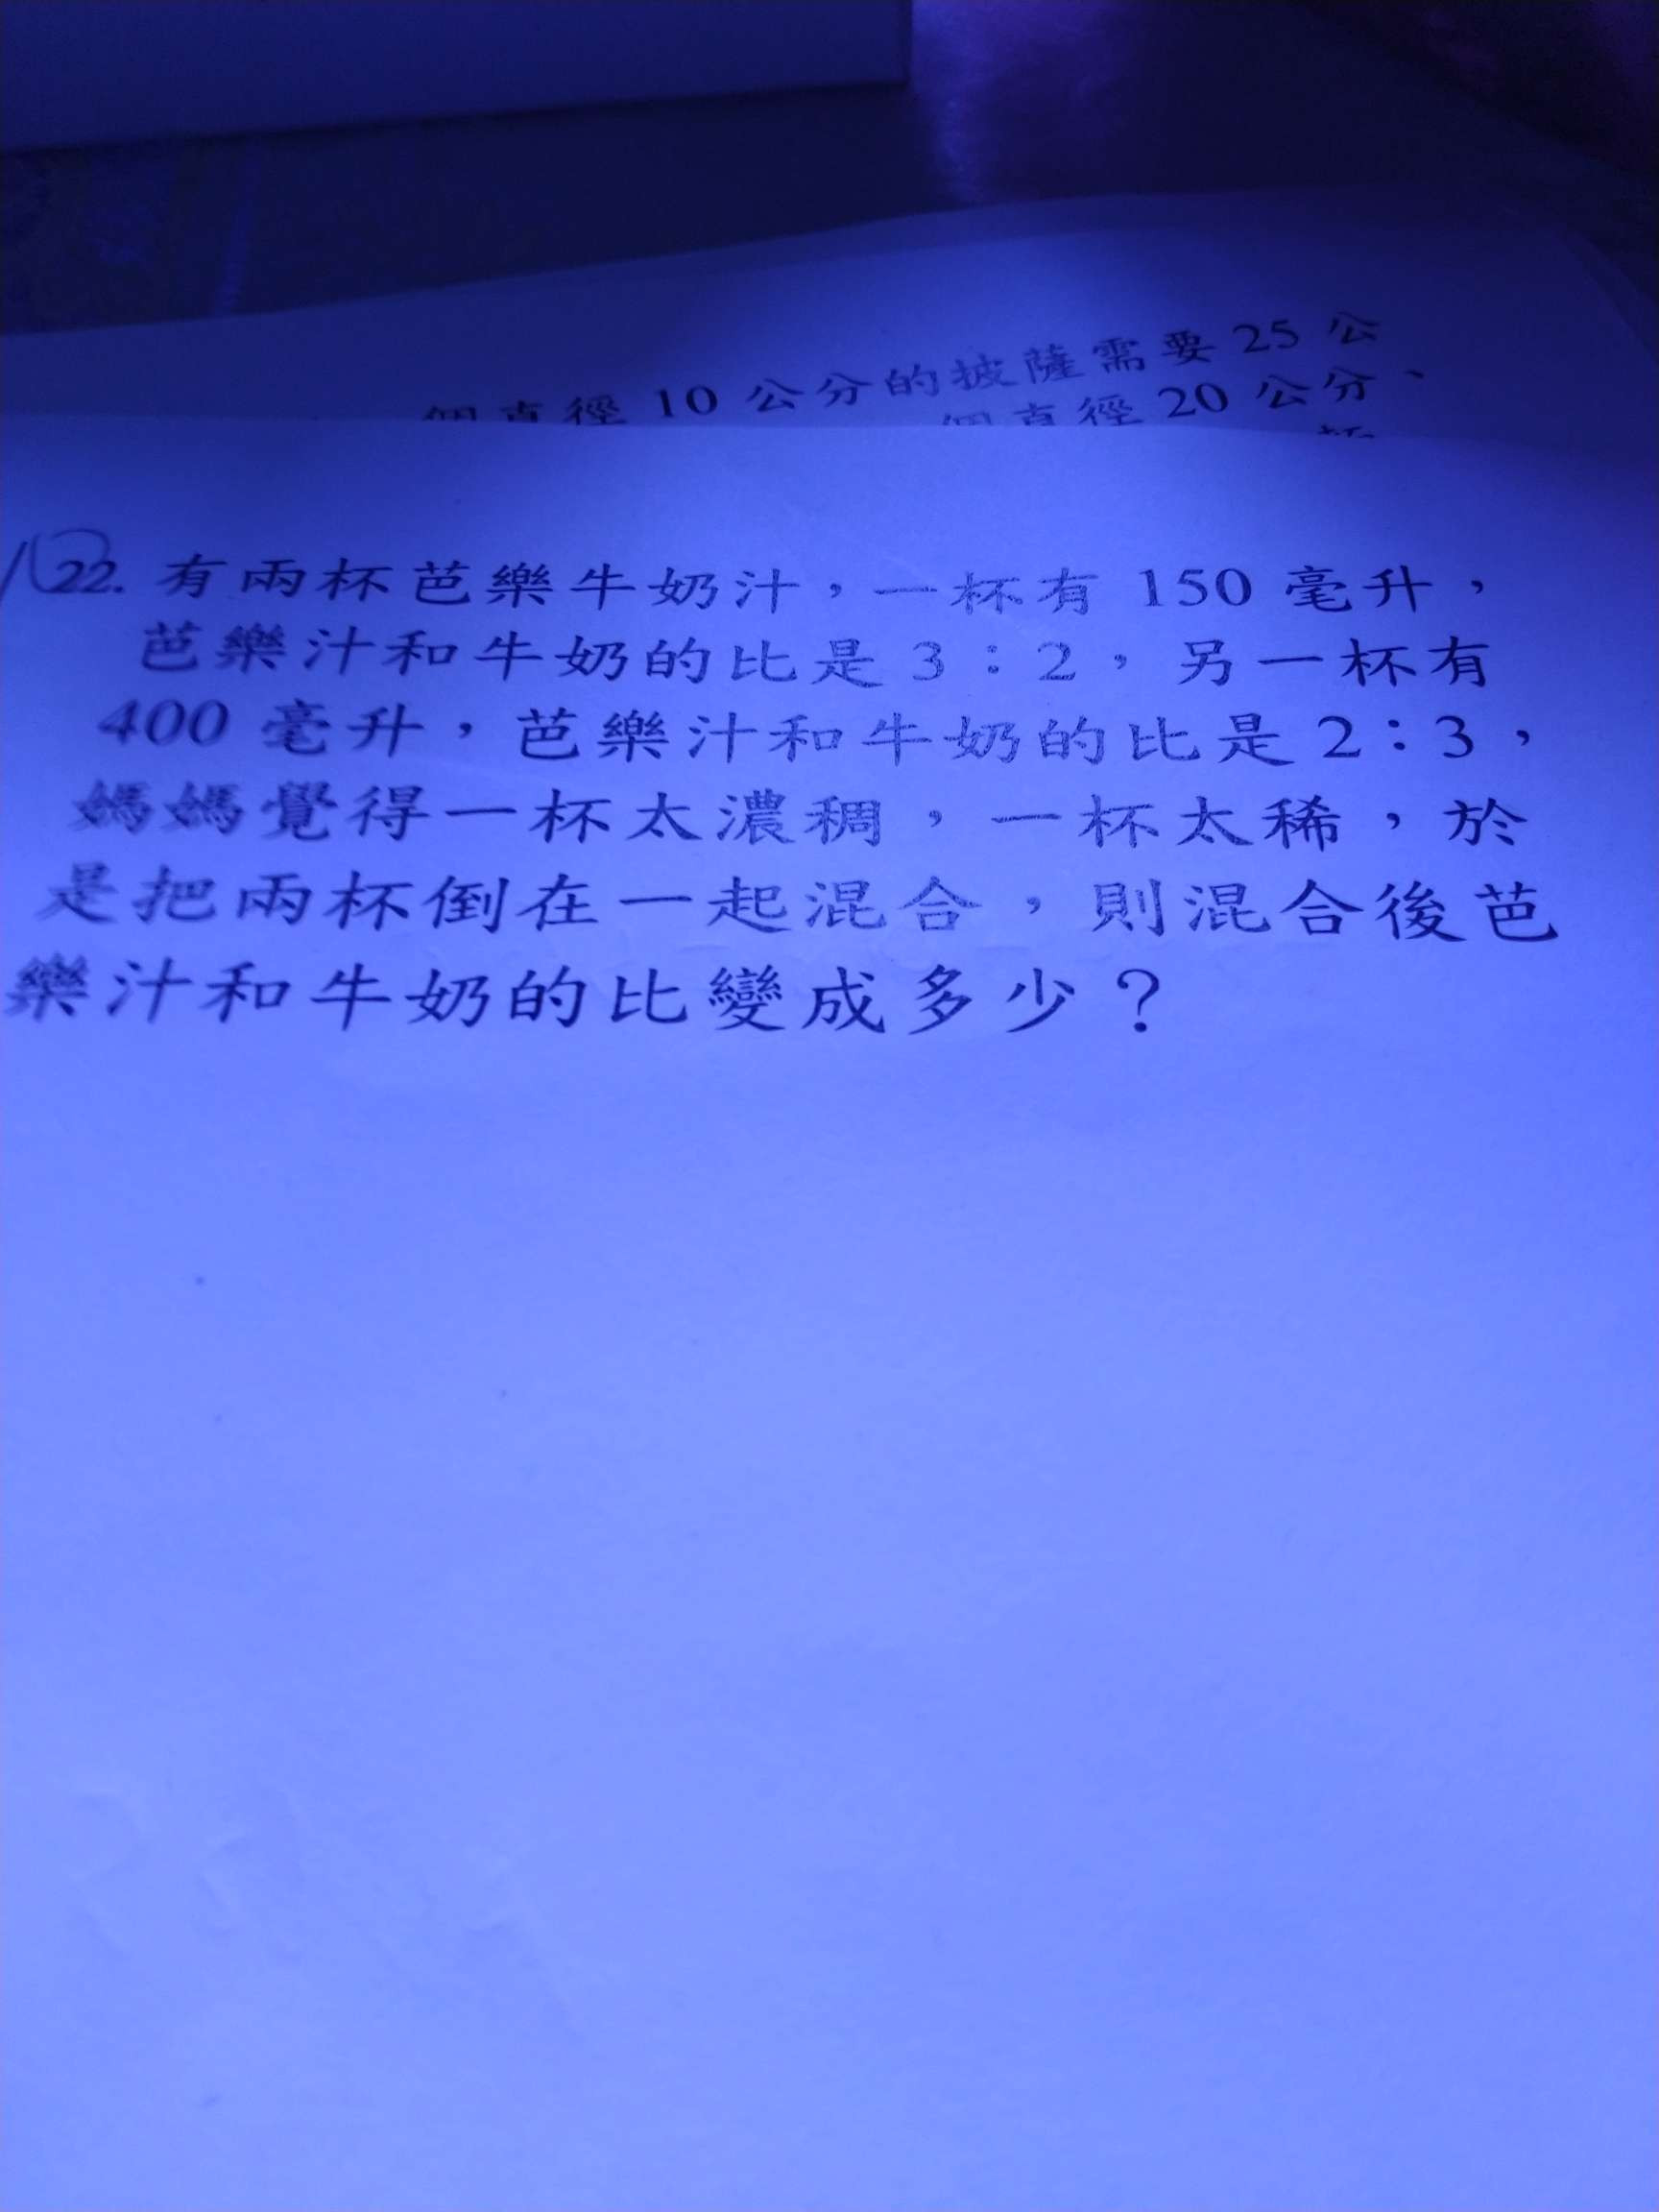 個直徑 10 公分的披薩需要 25 公
個直徑 20 公分、
22. 有兩杯芭樂牛奶汁，一杯有 150 毫升，
芭樂汁和牛奶的比是 3：2，另一杯有
400 毫升，芭樂汁和牛奶的比是 2：3，
媽媽覺得一杯太濃稠，一杯太稀，於
是把兩杯倒在一起混合，則混合後芭
樂汁和牛奶的比變成多少？